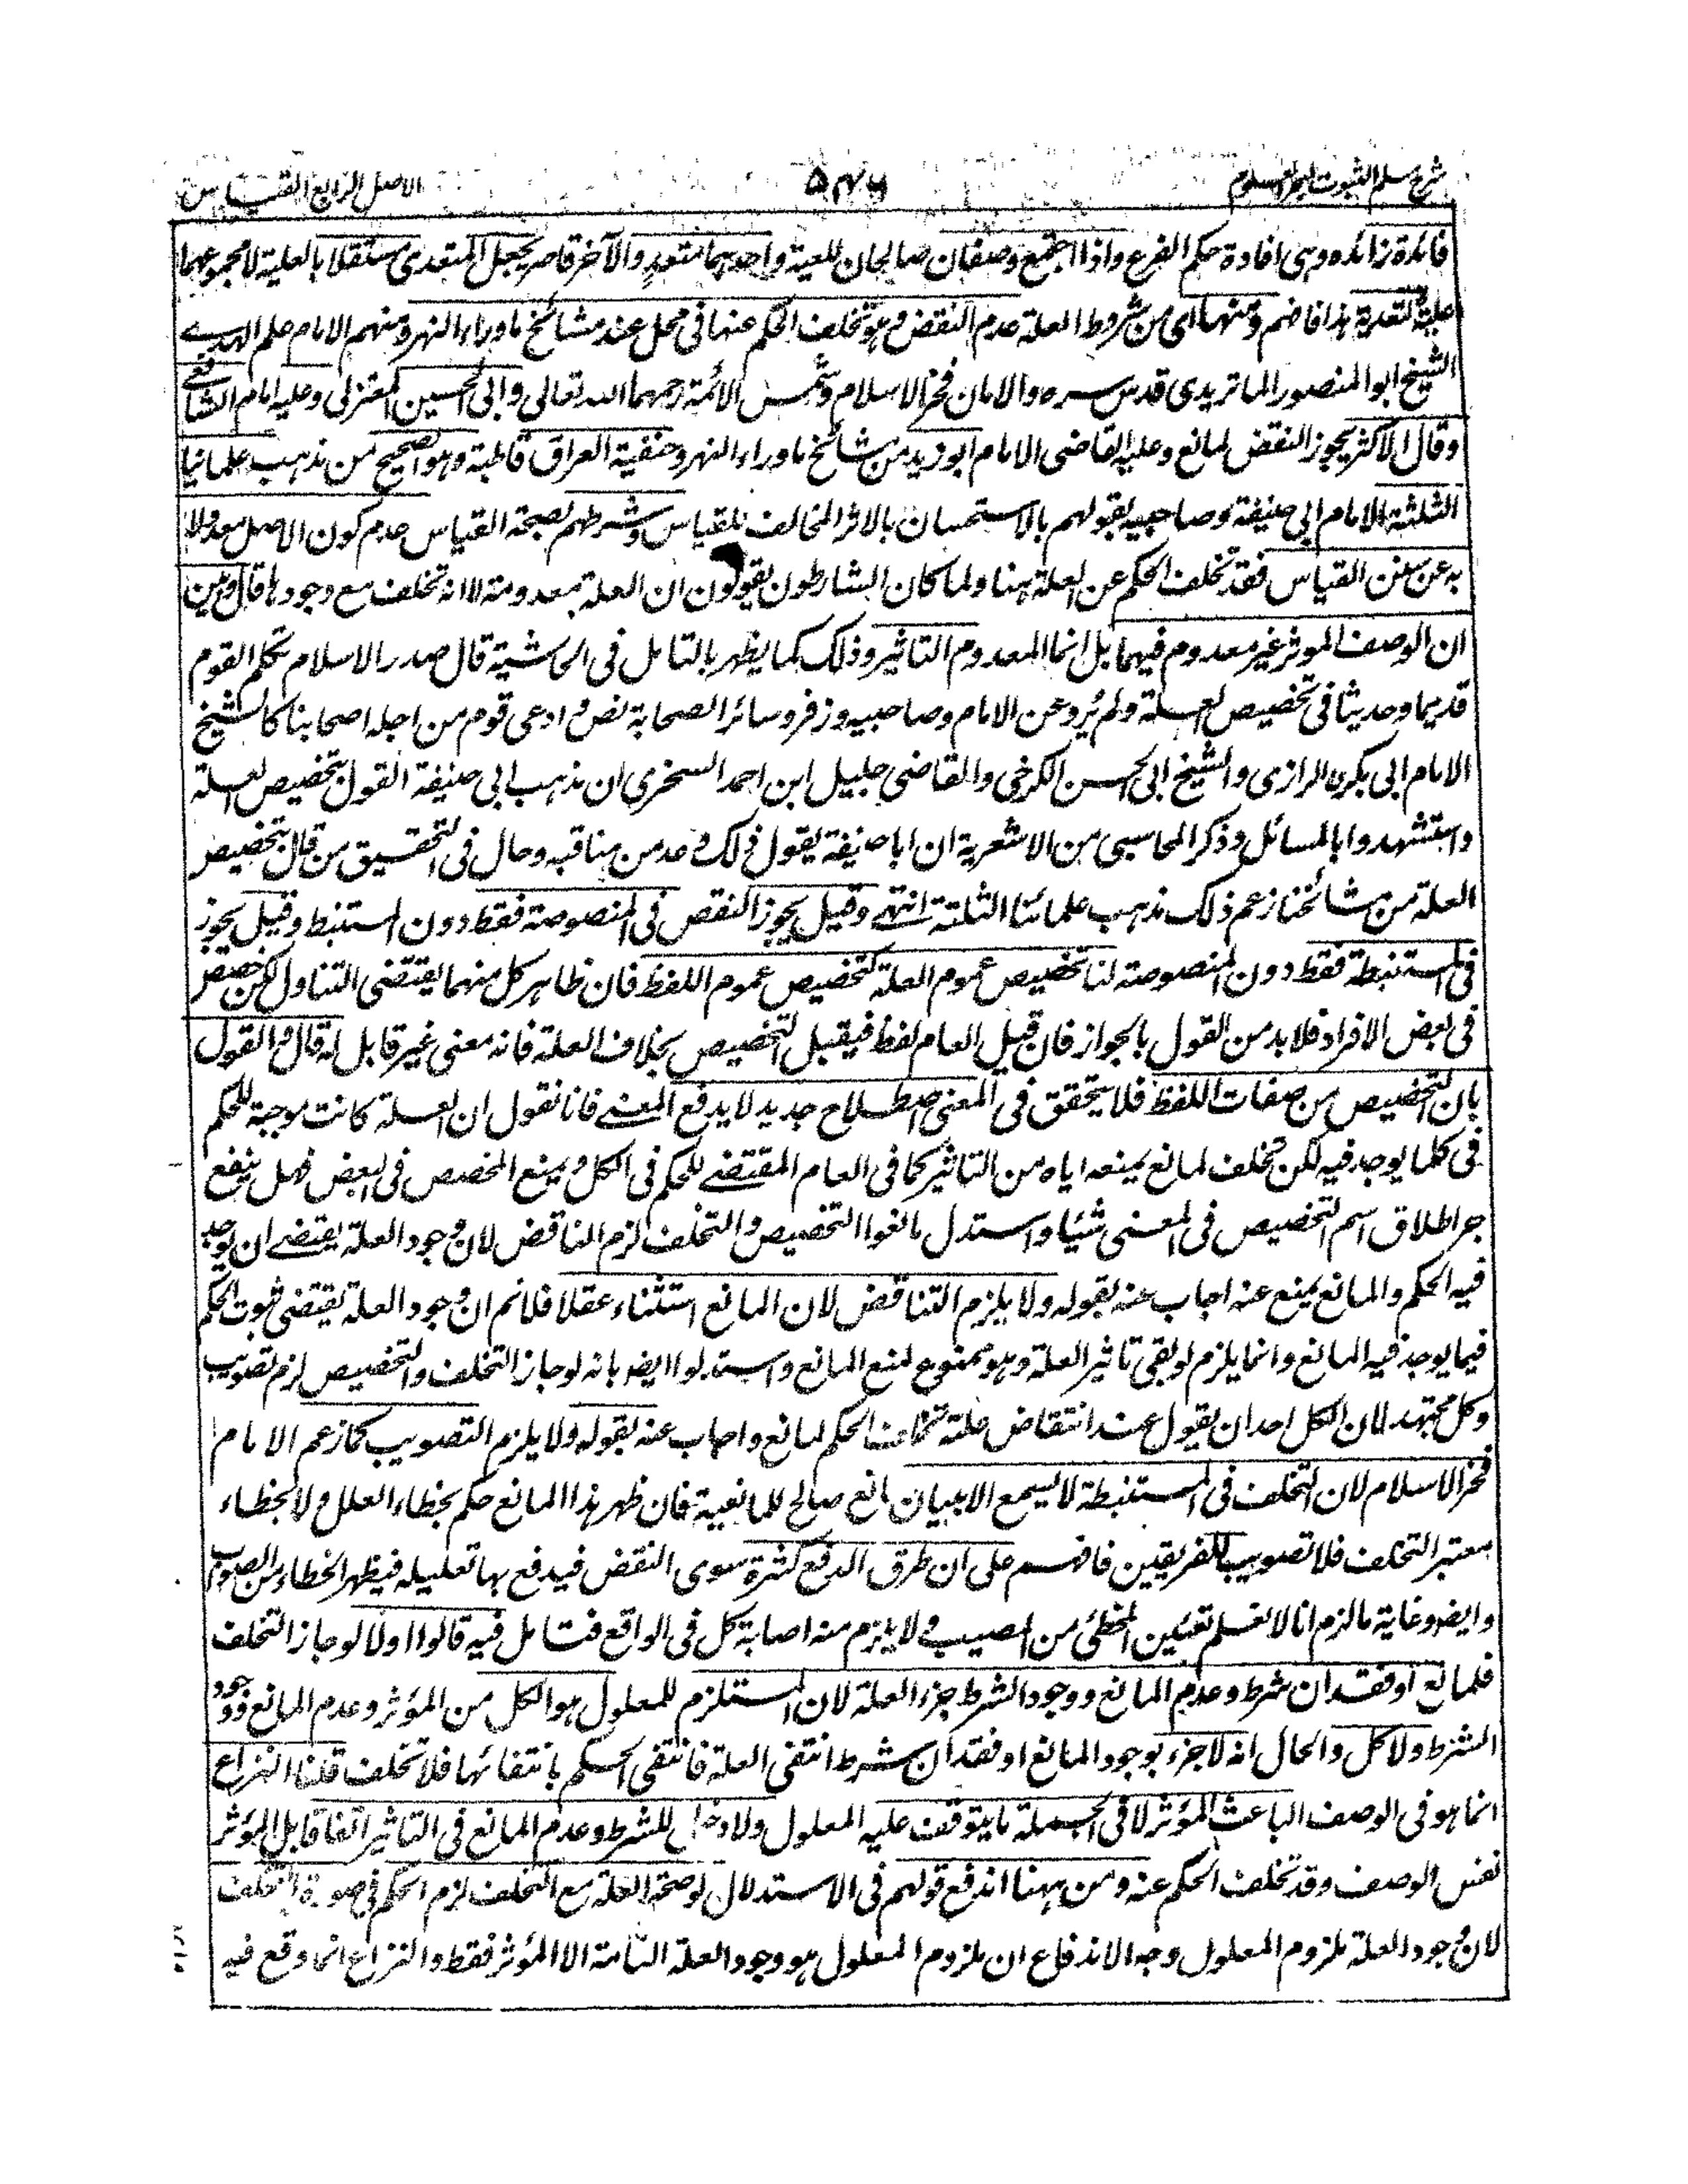 شرح مسلم الثبوت لبحر العلوم ٥٤٦ الاصل الرابع القياس
فائدة زائده وهى افادة حكم الفرع واذا اجتمع وصفان صالحان للعية واحدهما متعدٍ والآخر قاصر يجعل المتعدى مستقلا بالعلية لا مجموعهما
علية التعدية هذا فافهم ومنها اى من شروط العلة عدم النقض وهو تخلف الحكم عنها فى محل عند مشائخ ماوراء النهر ومنهم الامام علم الهدے
الشيخ ابو المنصور الماتريدى قدس سره والامامان فخر الاسلام وشمس الائمة رحمهما الله تعالى وابى الحسين المعتزلى وعليه امام الشافعے
وقال الاكثر يجوز النقض لمانع وعليه القاضى الامام ابو زيد من مشائخ ماوراء النهر وحنفية العراق قاطبة وهو الصحيح من مذهب علمائنا
الثلثة الامام ابى حنيفة وصاحبيه لقولهم بالاستحسان بالاثر المخالف للقياس وشرطهم لصحة القياس عدم كون الاصل معدولا
به عن سنن القياس فقد تخلف الحكم عن العلة ههنا ولما كان الشارطون يقولون ان العلة معدومة لا انه تخلف مع وجودها قال وتبين
ان الوصف الموثر غير معدوم فيهما بل انما المعدوم التاثير وذلك كما يظهر بالتامل فى الحاشية قال صدر الاسلام تكلم القوم
قديما وحديثا فى تخصيص العلة ولم يُرو عن الامام وصاحبيه وزفر وسائر الصحابة نص و ادعى قوم من اجله اصحابنا كالشيخ
الامام ابى بكر الرازى والشيخ ابى الحسن الكرخى والقاضى جليل ابن احمد السخري ان مذهب ابى حنيفة القول بتخصيص العلة
واستشهدوا بالمسائل وذكر المحاسبى من الاشعرية ان ابا حنيفة يقول ذلك وعد من مناقبه وحال فى التحقيق من قال بتخصيص
العلة من مشائخنا زعم ذلك مذهب علمائنا الثلثة انتهے وقيل يجوز النقض فى المنصوصة فقط دون المستنبط وقيل يجوز
فى المستنبطة فقط دون المنصوصة لنا تخصيص عموم العلة كتخصيص عموم اللفظ فان ظاهر كل منهما يقتضى التناول لكن خصص
فى بعض الافراد فلا بد من القول بالجواز فان قيل العام لفظ فيقبل التخصيص بخلاف العلة فانه معنى غير قابل له قال والقول
بان التخصيص من صفات اللفظ فلا يتحقق فى المعنى اصطلاح جديد لا يدفع المعنے فانا نقول ان العلة كانت موجبة للحكم
فى كل ما يوجد فيه لكن تخلف لمانع يمنعه اياه من التاثير كما فى العام المقتضے للحكم فى الكل ويمنع المخصص فى البعض فهل ينفع
حجر اطلاق اسم التخصيص فى المعنى شيئا واستدل مانغوا التخصيص والتخلف لزم التناقض لان وجود العلة يقتضے ان يوجد
فيه الحكم والمانع يمنع عنه اجاب عنه بقوله ولا يلزم التناقض لان المانع استثناء عقلا فلا نم ان وجود العلة يقتضى ثبوت الحكم
فيما يوجد فيه المانع وانما يلزم لو بقى تاثير العلة وهو ممنوع لمنع المانع واستدلوا ايضا بانه لو جاز التخلف والتخصيص لزم تصويب
وكل مجتهد لان لكل احد ان يقول عند انتقاض علة تخلف الحكم لمانع واجاب عنه بقوله ولا يلزم التصويب كما زعم الامام
فخر الاسلام لان التخلف فى المستنبطة لا يسمع الا ببيان مانع صالح للمانعية فان ظهر هذا المانع حكم بخطاء العلل ولا بخطاء
معتبر التخلف فلا تصويب للفريقين فافهم على ان طرق الدفع كثيرة سوى النقض فيدفع بها تعليله فيظهر الخطاء من الصواب
وايضا وغاية ما لزم انا لا نعلم تعيين المخطئ من المصيب و لا يلزم منه اصابة كل فى الواقع فتامل فيه قالوا اولا لو جاز التخلف
فلمانع او فقدان شرط وعدم المانع ووجود الشرط جزء العلة لان المستلزم للمعلول هو الكل من المؤثر وعدم المانع ووجود
الشرط ولا كل والحال انه لا جزء بوجود المانع او فقدان شرط انتفى العلة فانتفى الحكم بانتفائها فلا تخلف قلنا النزاع
انما هو فى الوصف الباعث المؤثر لا فى الجملة ما يتوقف عليه المعلول ولا دخل للشرط وعدم المانع فى التاثير اتفاقا بل المؤثر
نفس الوصف وقد تخلف الحكم عنه ومن ههنا اندفع قولهم فى الاستدلال لو صحة العلة مع التخلف لزم الحكم فى صورة التخلف
لان وجود العلة ملزوم المعلول وجه الاندفاع ان ملزوم المعلول هو وجود العلة التامة لا المؤثر فقط والنزاع انما وقع فيه